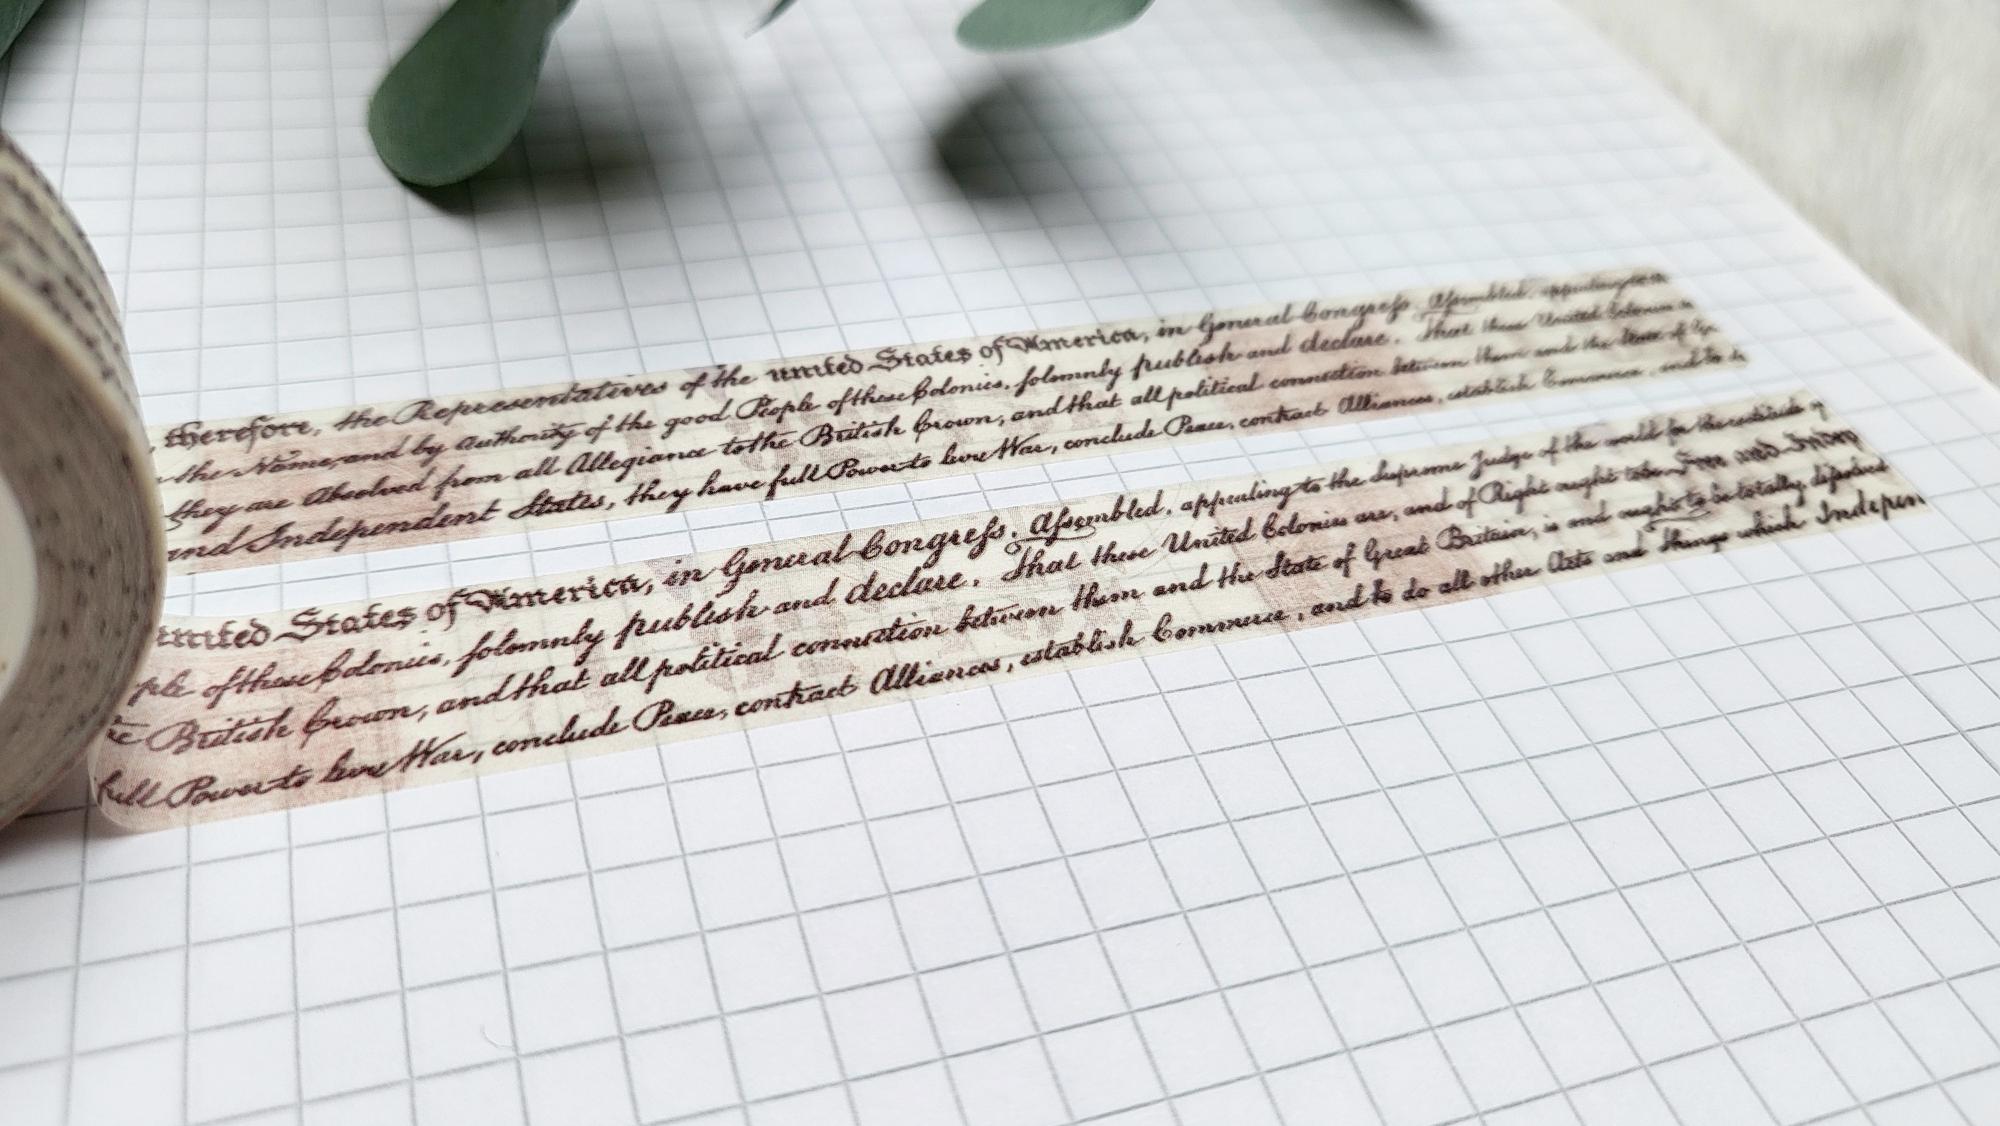 , therefore, the Representatives of the united States of America, in General Congreſs. Aſsembled, appealing
the Name, and by authority of the good People of these Colonies, solemnly publish and declare. That these United Colonies
they are Absolved from all Allegiance to the British Crown, and that all political connection between them and the State of
and Independent States, they have full Power to levy War, conclude Peace, contract Alliances, establish Commerce, and to
united States of America, in General Congreſs. Aſsembled, appealing to the Supreme Judge of the world for the rectitude of
ple of these Colonies, solemnly publish and declare. That these United Colonies are, and of Right ought to be Free and Indep
British Crown, and that all political connection between them and the State of Great Britain, is and ought to be totally diſsolved
full Power to levy War, conclude Peace, contract Alliances, establish Commerce, and to do all other Acts and Things which Indepen